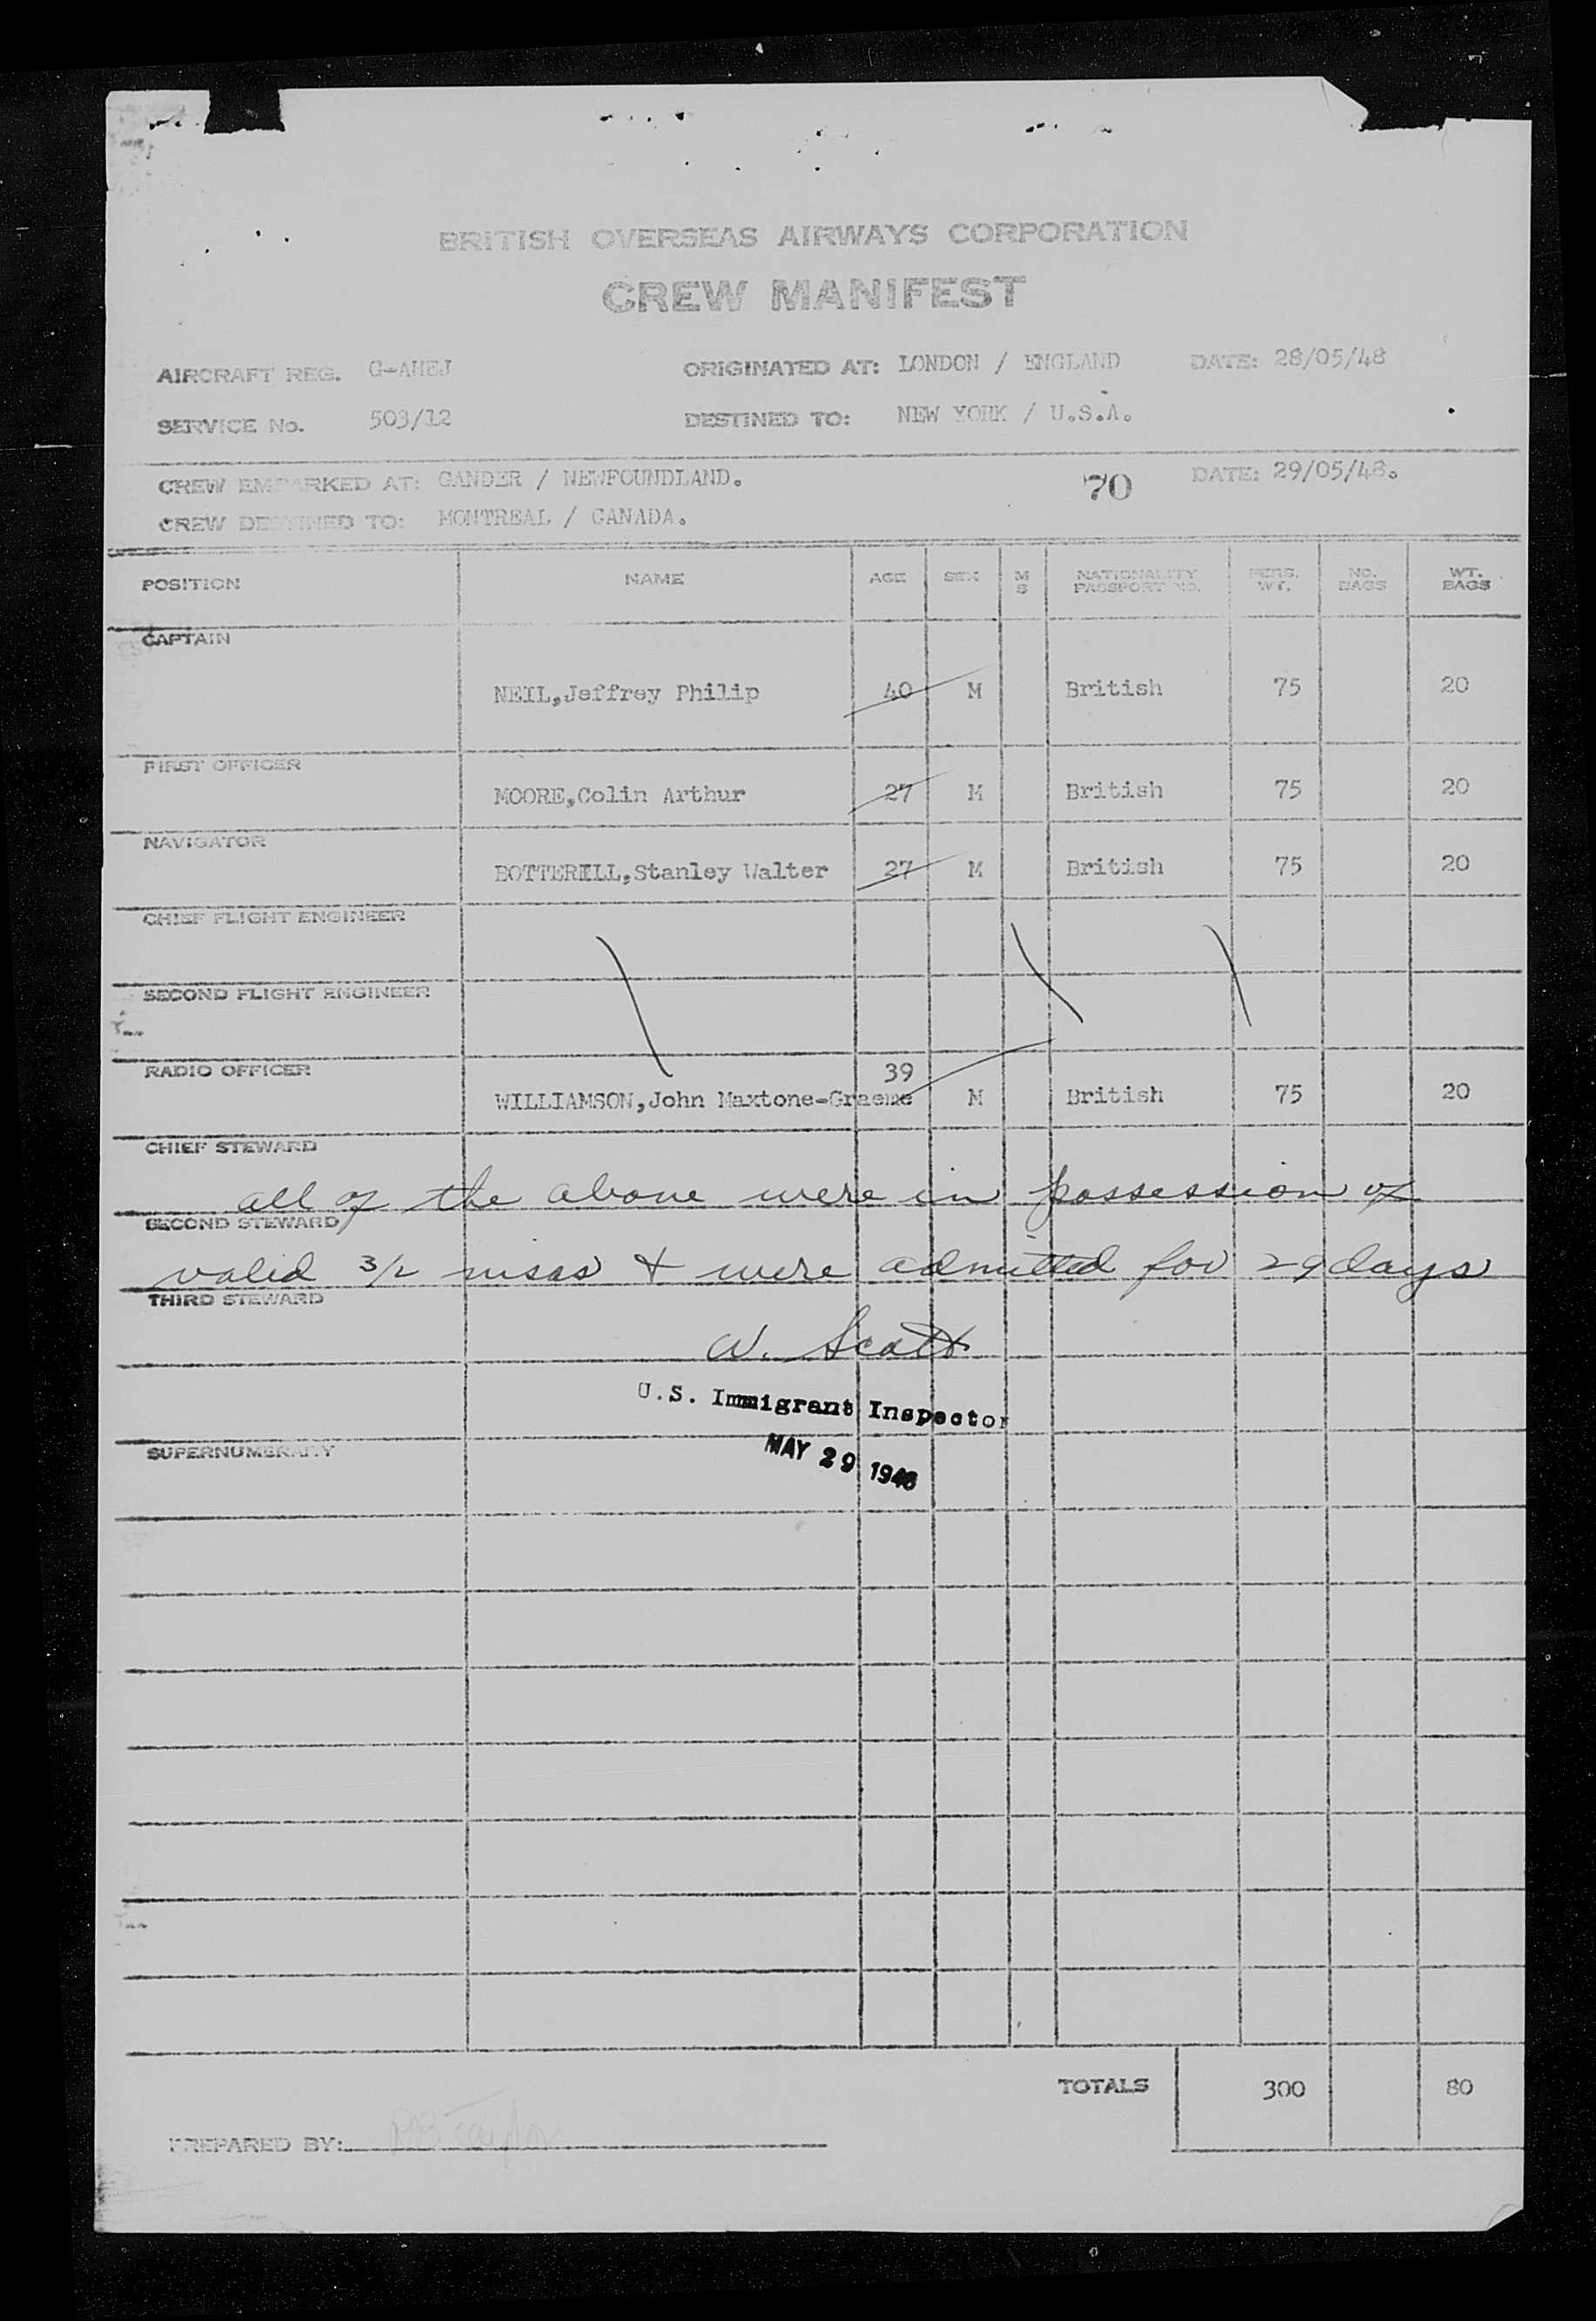 BRITISH OVERSEAS AIRWAYS CORPORATION
CREW MANIFEST
AIRCRAFT REG. G-AHEJ ORIGINATED AT: LONDON / ENGLAND DATE: 28/05/48
SERVICE No. 503/12 DESTINED TO: NEW YORK / U.S.A.
CREW EMBARKED AT: GANDER / NEWFOUNDLAND. 70 DATE: 29/05/48.
CREW DESTINED TO: MONTREAL / CANADA.
POSITION NAME AGE SEX M S NATIONALITY PASSPORT NO. PERS. WT. NO. BAGS WT. BAGS
CAPTAIN
NEIL,Jeffrey Philip 40 M British 75 20
FIRST OFFICER
MOORE,Colin Arthur 27 M British 75 20
NAVIGATOR
BOTTERILL,Stanley Walter 27 M British 75 20
CHIEF FLIGHT ENGINEER
SECOND FLIGHT ENGINEER
RADIO OFFICER 39
WILLIAMSON,John Maxtone-Graeme M British 75 20
CHIEF STEWARD
all of the above were in possession of
SECOND STEWARD
valid 3/2 visas & were admitted for 29 days
THIRD STEWARD
W. Scott
U.S. Immigrant Inspector
MAY 29 1948
SUPERNUMERARY
TOTALS 300 80
PREPARED BY: